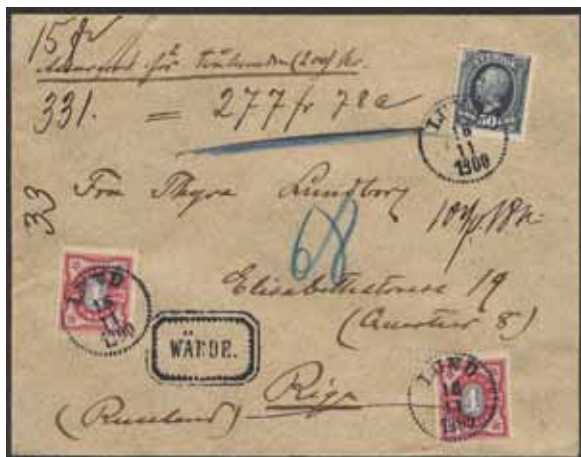 15 gr
Assurerat för tvåhundra (200) Kr.
331. = 277 fr 78 c
SVERIGE
50
LUND
16
11
1900
33
Frau Thyra Lundborg
68
Elisabethstrasse 19
(Quartier 8)
LUND
16
11
1900
WÄRDE.
Riga
(Russland)
1
LUND
16
11
1900